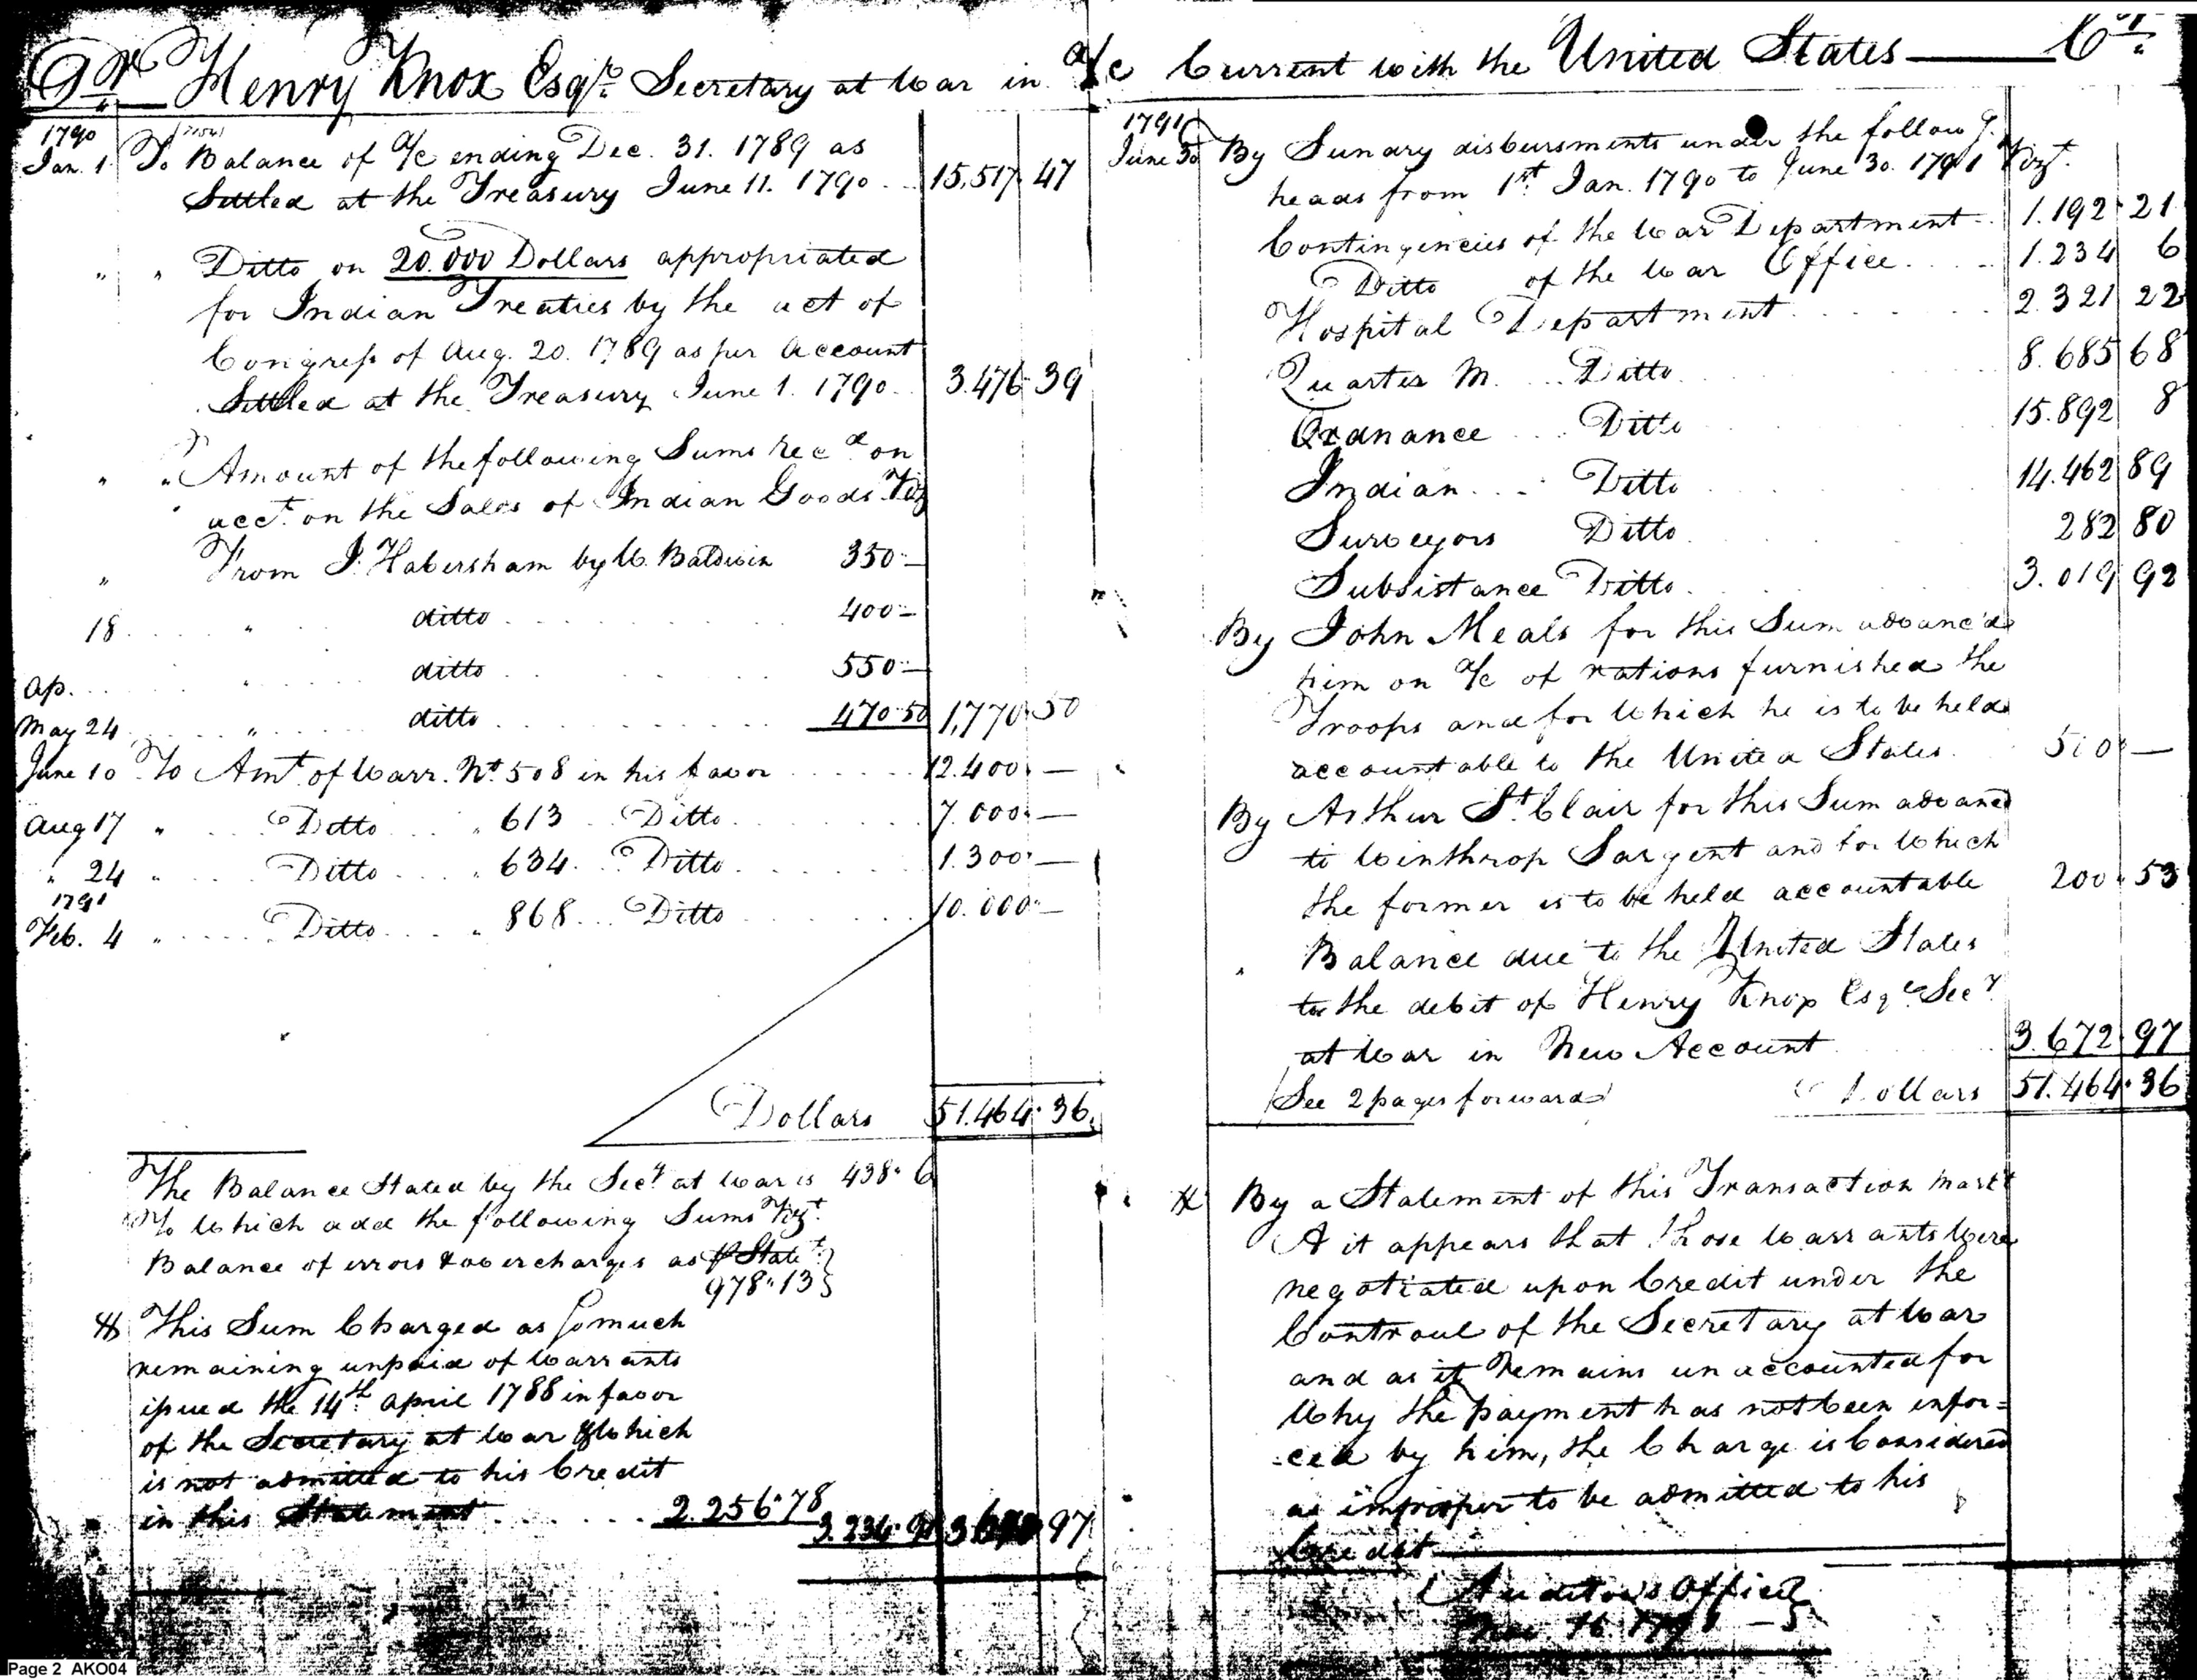 Dr. Henry Knox Esqr. Secretary at War in a/c Current with the United States Cr.
1790
Jan. 1 To Balance of a/c ending Dec. 31. 1789 as
Settled at the Treasury June 11. 1790 15,517 47
" " Ditto on 20.000 Dollars appropriated
for Indian Treaties by the act of
Congress of Aug. 20. 1789 as per Account
Settled at the Treasury June 1. 1790 3.476 39
" " Amount of the following Sums recd on
acct. on the Sales of Indian Goods Vizt
" From J. Habersham by W. Baldwin 350 —
18 " ditto 400 —
Ap. " ditto 550 —
May 24 " ditto 470.50 1,770 50
June 10 To Amt. of Warr. No. 508 in his favor 12.400 —
Aug 17 " Ditto " 613 Ditto 7.000 —
" 24 " Ditto " 634 Ditto 1.300 —
1791
Feb. 4 " Ditto " 868 Ditto 10.000 —
Dollars 51.464 36
The Balance Stated by the Secy. at War is 438. 6
To Which add the following Sums Vizt.
Balance of errors & overcharges as pr Statet.
978.13
This Sum Charged as so much
remaining unpaid of Warrants
issued the 14th. April 1788 in favor
of the Secretary at War & Which
is not admitted to his Credit
in this Statement 2.256.78
3.234.91 97
1791
June 30 By Sundry disbursments under the followg.
heads from 1st. Jan. 1790 to June 30. 1791 Vizt.
Contingencies of the War Department 1.192 21
Ditto of the War Office 1.234 6
Hospital Department 2.321 22
Quarter M. Ditto 8.685 68
Ordnance Ditto 15.892 8
Indian Ditto 14.462 89
Surveyors Ditto 282 80
Subsistance Ditto 3.019 92
By John Meals for this Sum advanc'd
him on a/c of rations furnished the
Troops and for Which he is to be held
accountable to the United States —
By Arthur St. Clair for this Sum advanced
to Winthrop Sargent and for Which
the former is to be held accountable 200 53
" Balance due to the United States
to the debit of Henry Knox Esqr. Secy.
at War in New Account 3.672 97
See 2 pages forward Dollars 51.464 36
By a Statement of this Transaction mark't
A it appears that those Warrants Were
negotiated upon Credit under the
Controul of the Secretary at War
and as it remains unaccounted for
Why the payment has not been enfor=
=ced by him, the Charge is Considered
as improper to be admitted to his
Credit
Auditors Office
16. 1791
Page 2 AKO04